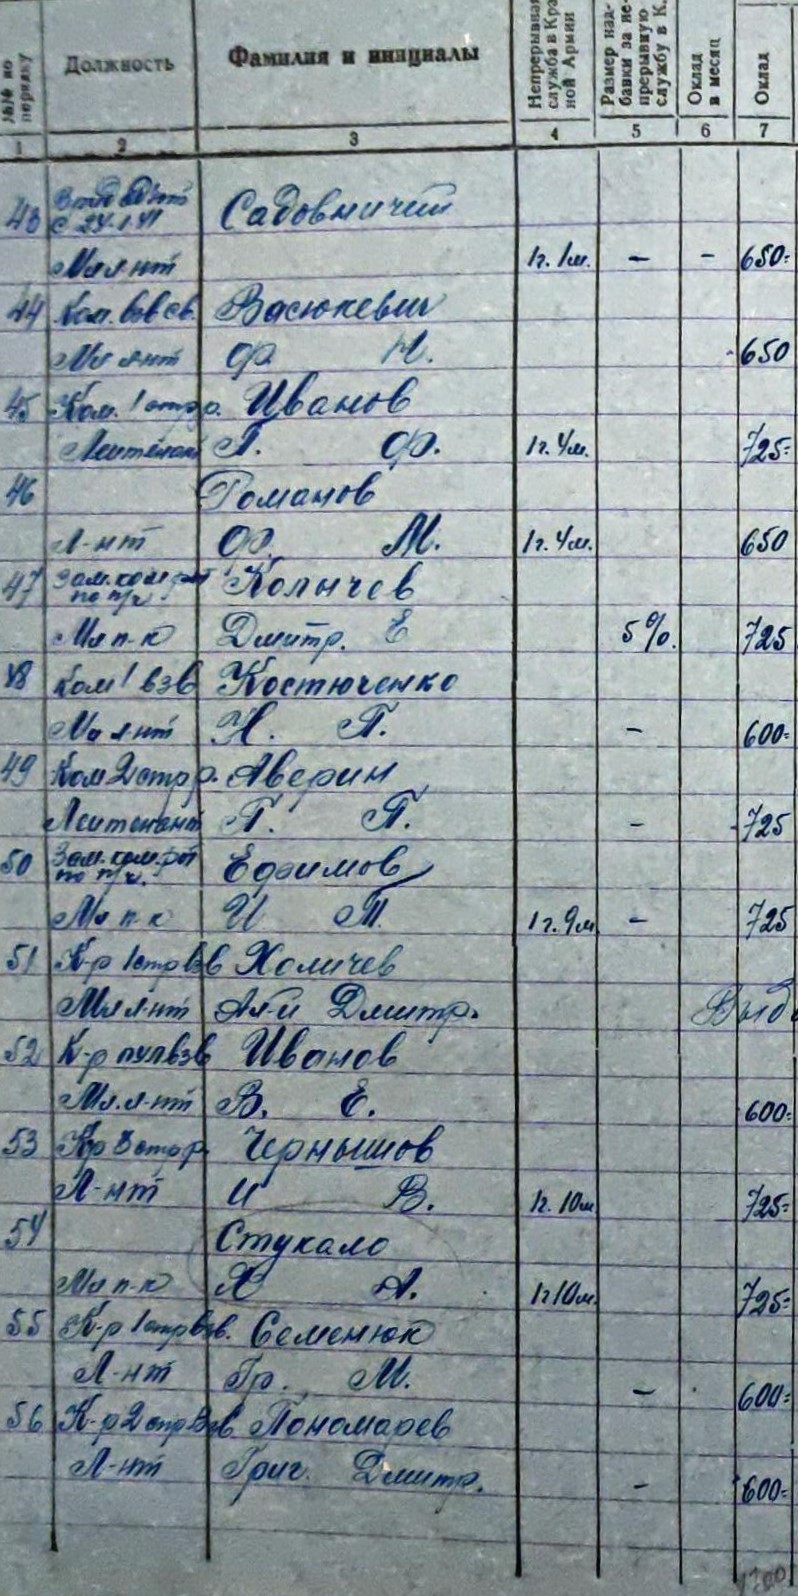 №№ по порядку Должность Фамилия и инициалы Непрерывная служба в Красной Армии Размер надбавки за непрерывную службу в К. Оклад в месяц Оклад
1 2 3 4 5 6 7
43 Садовничий
Мл л-нт 1г. 1м. – – 650=
44 Ком. взв св. Васюкевич
Мл л-нт Ф. Н. 650
45 Ком. 1 стр р. Иванов
Лейтенант П. Ф. 1г. 4м. 725=
46 Романов
Л-нт Ф. М. 1г. 4м. 650
47 Зам. ком рот по п/ч. Колычев
Мл п-к Дмитр. Е 5%. 725
48 Ком 1 взв Костюченко
Мл л-нт Н. П. – 600=
49 Ком 2 стр р. Аверин
Лейтенант П. П. – 725
50 Зам. ком. рот по п/ч. Ефимов
Мл п-к И 1г. 9м – 725
51 К-р 1 стр взв Холичев
Мл л-нт Дмитр.
52 К-р пул взв Иванов
Мл. л-нт В. Е. 600=
53 К-р 3 стр р. Чернышов
Л-нт И В. 1г. 10м 725=
54 Стукало
Мл п-к А. 1г 10м. 725=
55 К-р 1 стр взв. Семенюк
Л-нт Гр. М. – 600=
56 К-р 2 стр взв Пономарев
Л-нт Григ. Дмитр. – 600=